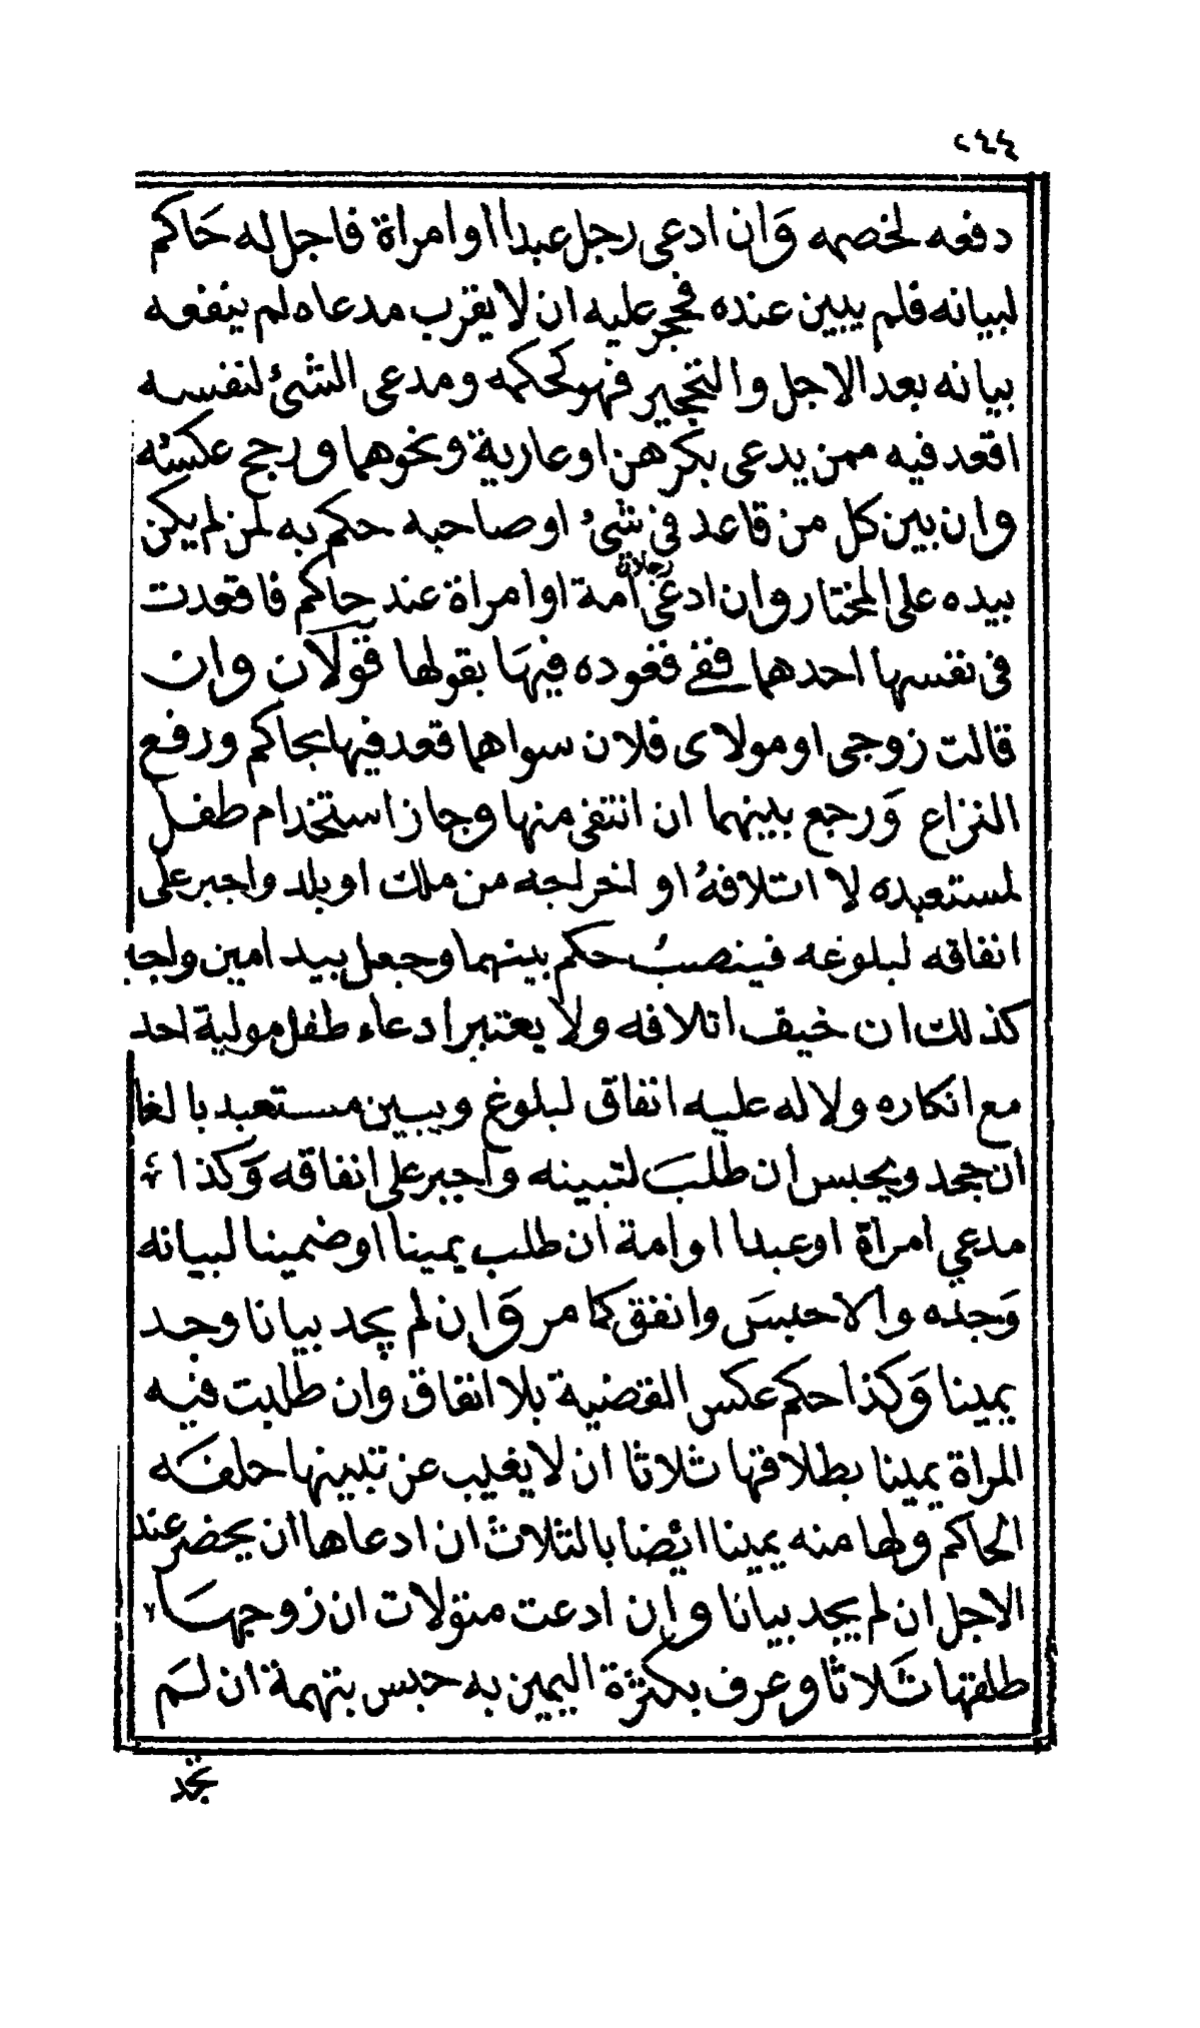 ٢٤٤
دفعه لخصمه وَان ادعى رجل عبدا او امراة فاجل له حَاكم
لبيانه فلم يبين عنده فحجر عليه ان لا يقرب مدعاه لم ينفعه
بيانه بعد الاجل والتحجير فهو كحكمه ومدعى الشئ لنفسه
اقعد فيه ممن يدعى بكرهن او عارية ونحوهما ورجح عكسُه
وان بين كل من قاعد فى شئُ او صاحبه حكم به لمن لم يكن
بيده على المختار وان ادعى رجلان امة او امراة عند حاكم فاقعدت
فى نفسها احدهما ففى قعوده فيهَا بقولها قولَان وان
قالت زوجى او مولاى فلان سواهما قعد فيها بحاكم ورفع
النزاع وَرجع بينهما ان انتفى منها وجاز استخدام طفل
لمستعبده لا اتلافهُ او اخراجه من ملك او بلد واجبر على
انفاقه لبلوغه فينصبُ حكم بينهما وجعل بيد امين واجبر
كذلك ان خيف اتلافه ولا يعتبر ادعاء طفل مولية احد
مع انكاره ولا له عليه انفاق لبلوغ ويبين مستعبد بالغا
ان جحد ويحبس ان طلبَ لتبينه واجبر على انفاقه وَكذا
مدعي امراة او عبدا او امة ان طلب يمينا او ضمينا لبيانه
وَجده والا حبسَ وانفق كما مر وَان لم يجد بيانا وجد
يمينا وَكذا حكم عكس القضية بلا انفاق وان طلبت فيه
المراة يمينا بطلاقها ثلاثا ان لا يغيب عن تبينها حلفَه
الحاكم ولها منه يمينا ايضا بالثلاث ان ادعاها ان يحضر عند
الاجل ان لم يجد بيانا وان ادعت متولات ان زوجهَا
طلقها ثَلاثا وعرف بكثرة اليمين به حبس بتهمة ان لَم
تجد